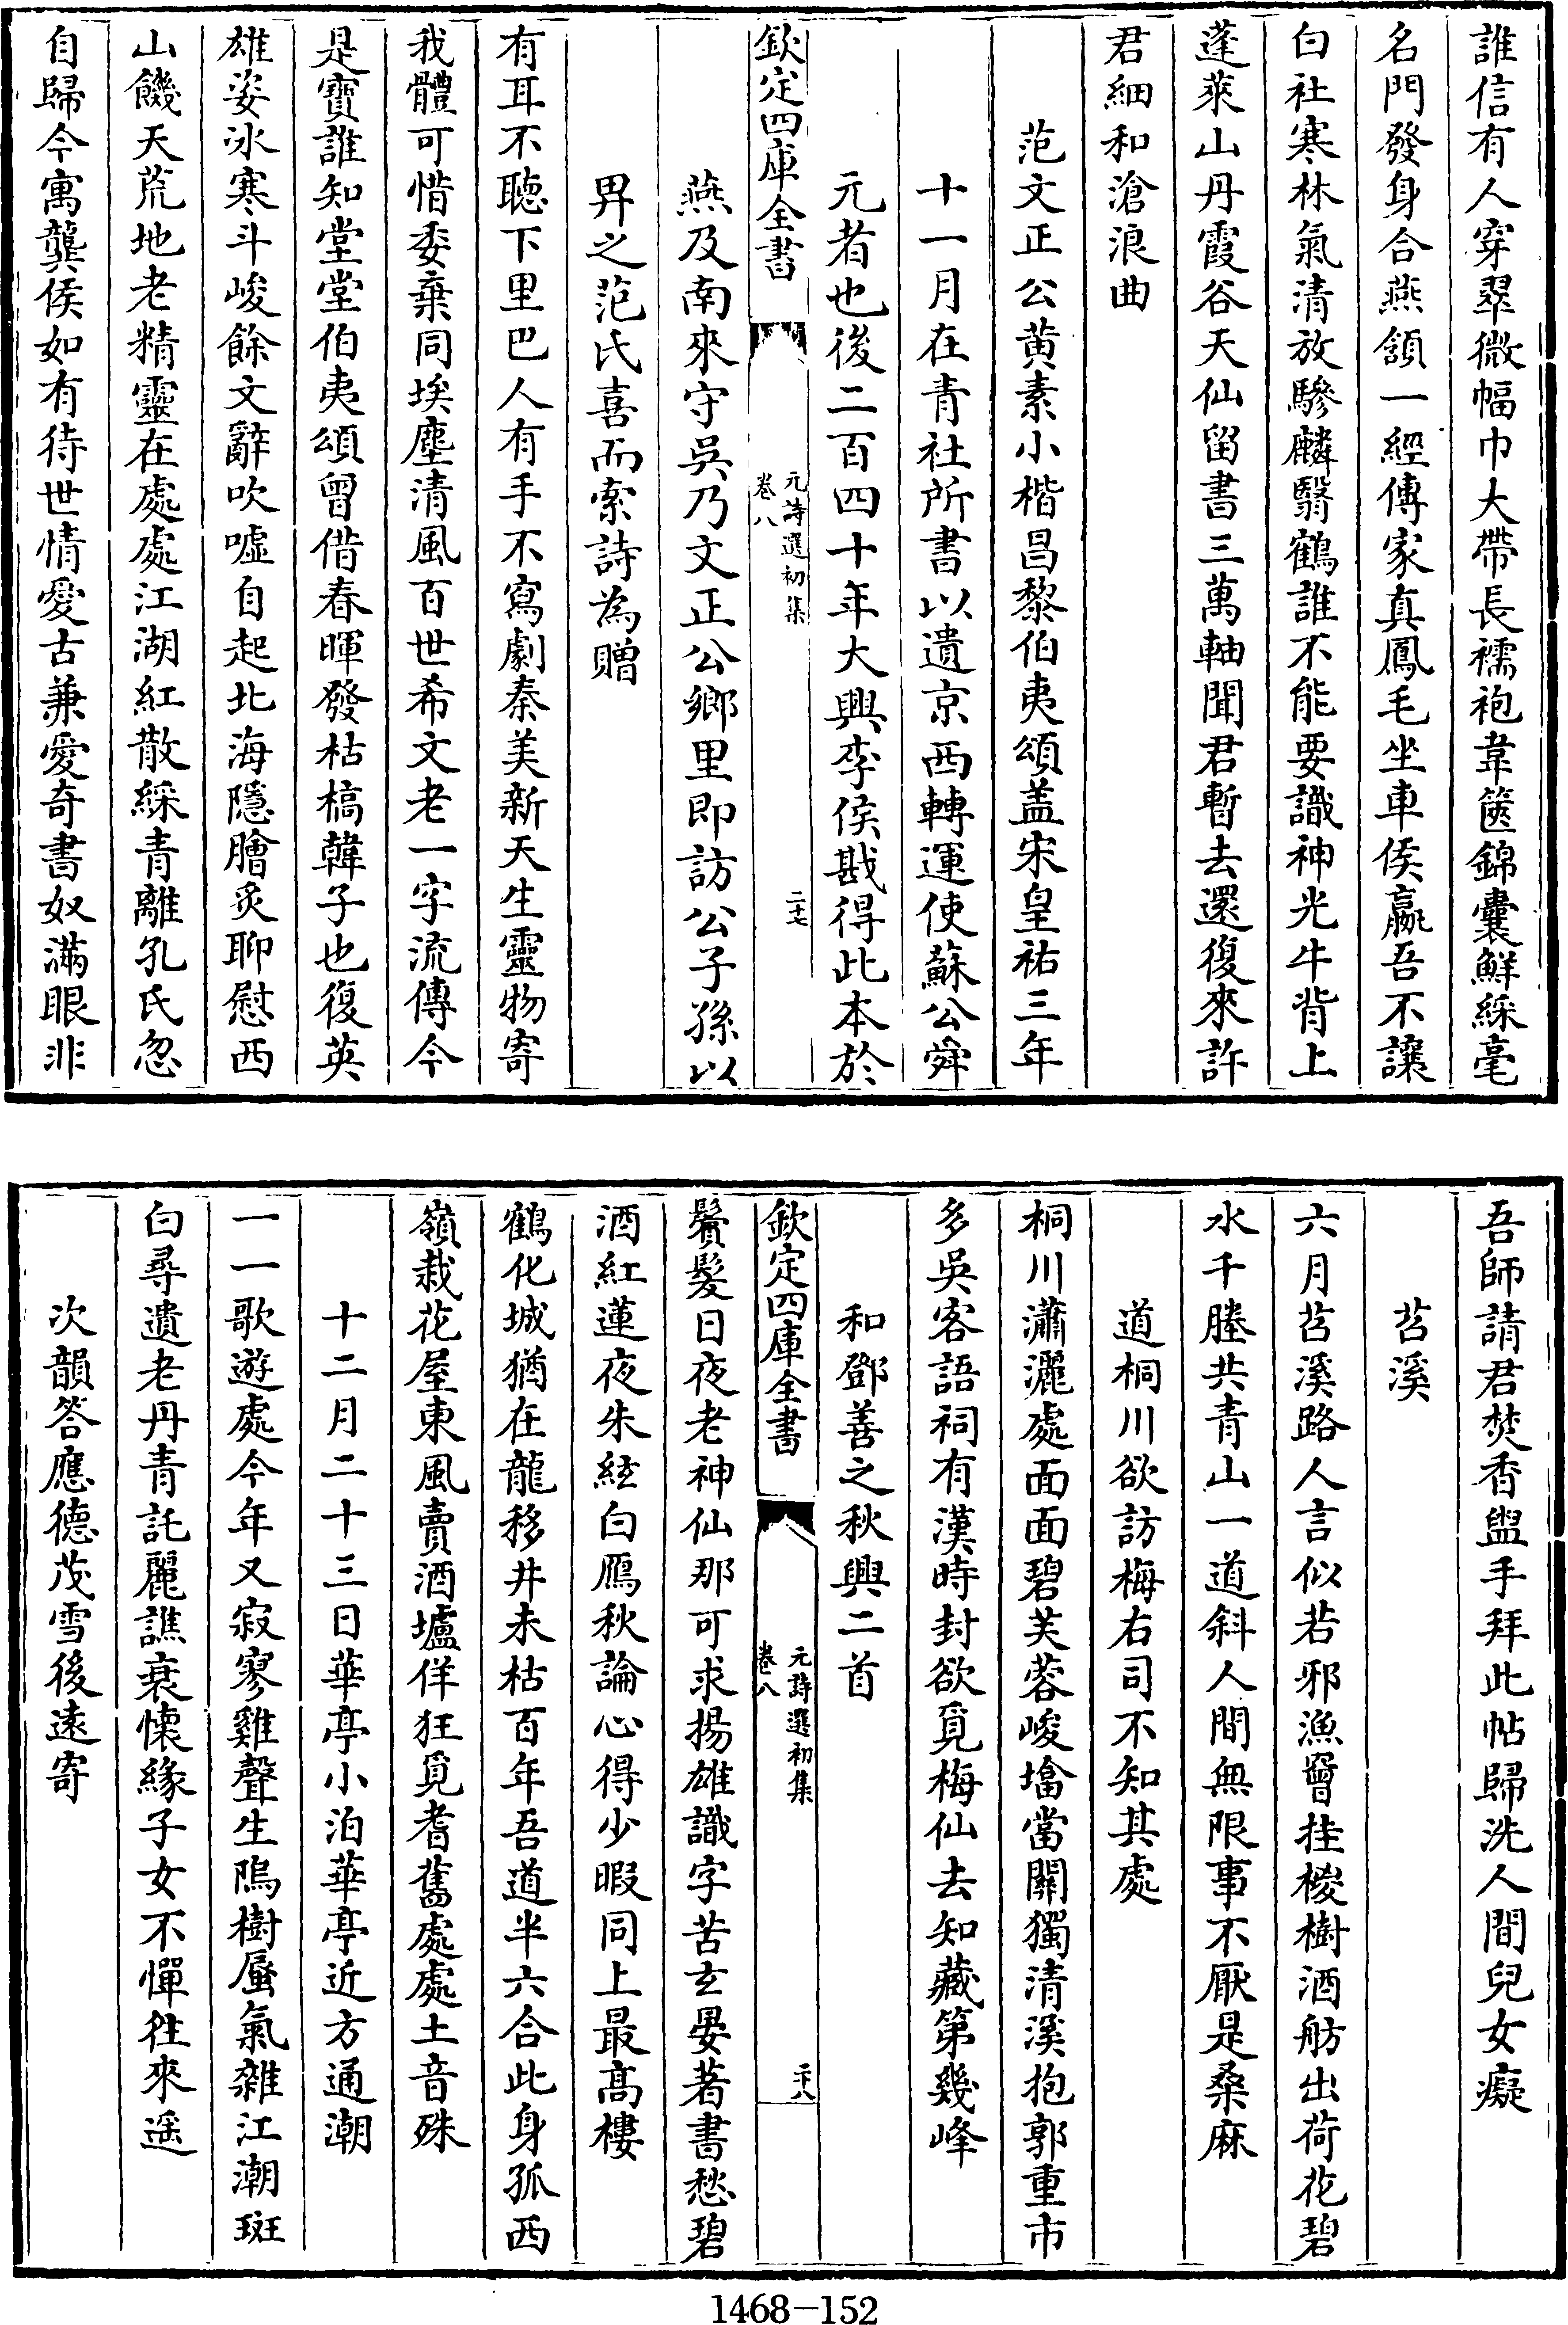 誰信有人穿翠微幅巾大帶長襦袍韋篋錦囊鮮綵毫
名門發身合燕頷一經傳家真鳳毛坐車侯嬴吾不讓
白社寒林氣清放驂麟翳鶴誰不能要識神光牛背上
蓬萊山丹霞谷天仙留書三萬軸聞君暫去還復來許
君細和滄浪曲
范文正公黄素小楷昌黎伯夷頌盖宋皇祐三年
十一月在青社所書以遺京西轉運使蘇公舜
元者也後二百四十年大興李侯戡得此本於
欽定四庫全書
元詩選初集
卷八
二十七
燕及南來守吳乃文正公鄉里即訪公子孫以
畀之范氏喜而索詩為贈
有耳不聴下里巴人有手不寫劇秦美新天生靈物寄
我體可惜委棄同埃塵清風百世希文老一字流傳今
是寶誰知堂堂伯夷頌曾借春暉發枯槁韓子也復英
雄姿冰寒斗峻餘文辭吹噓自起北海隱膾炙聊慰西
山饑天荒地老精靈在處處江湖紅散綵青離孔氏忽
自歸今寓龔侯如有待世情愛古兼愛奇書奴滿眼非
吾師請君焚香盥手拜此帖歸洗人間兒女癡
苕溪
六月苕溪路人言似若邪漁罾挂椶樹酒舫出荷花碧
水千塍共青山一道斜人間無限事不厭是桑麻
道桐川欲訪梅右司不知其處
桐川瀟灑處面面碧芙蓉峻壋當關獨清溪抱郭重市
多吳客語祠有漢時封欲覓梅仙去知藏第幾峰
和鄧善之秋興二首
欽定四庫全書
元詩選初集
卷八
二十八
鬢髮日夜老神仙那可求揚雄識字苦玄晏著書愁碧
酒紅蓮夜朱絃白鴈秋論心得少暇同上最高樓
鶴化城猶在龍移井未枯百年吾道半六合此身孤西
嶺栽花屋東風賣酒壚佯狂覓耆舊處處土音殊
十二月二十三日華亭小泊華亭近方通潮
一一歌遊處今年又寂寥雞聲生隝樹蜃氣雜江潮斑
白尋遺老丹青託麗譙衰懷緣子女不憚往來遥
次韻答應德茂雪後遠寄
1468-152